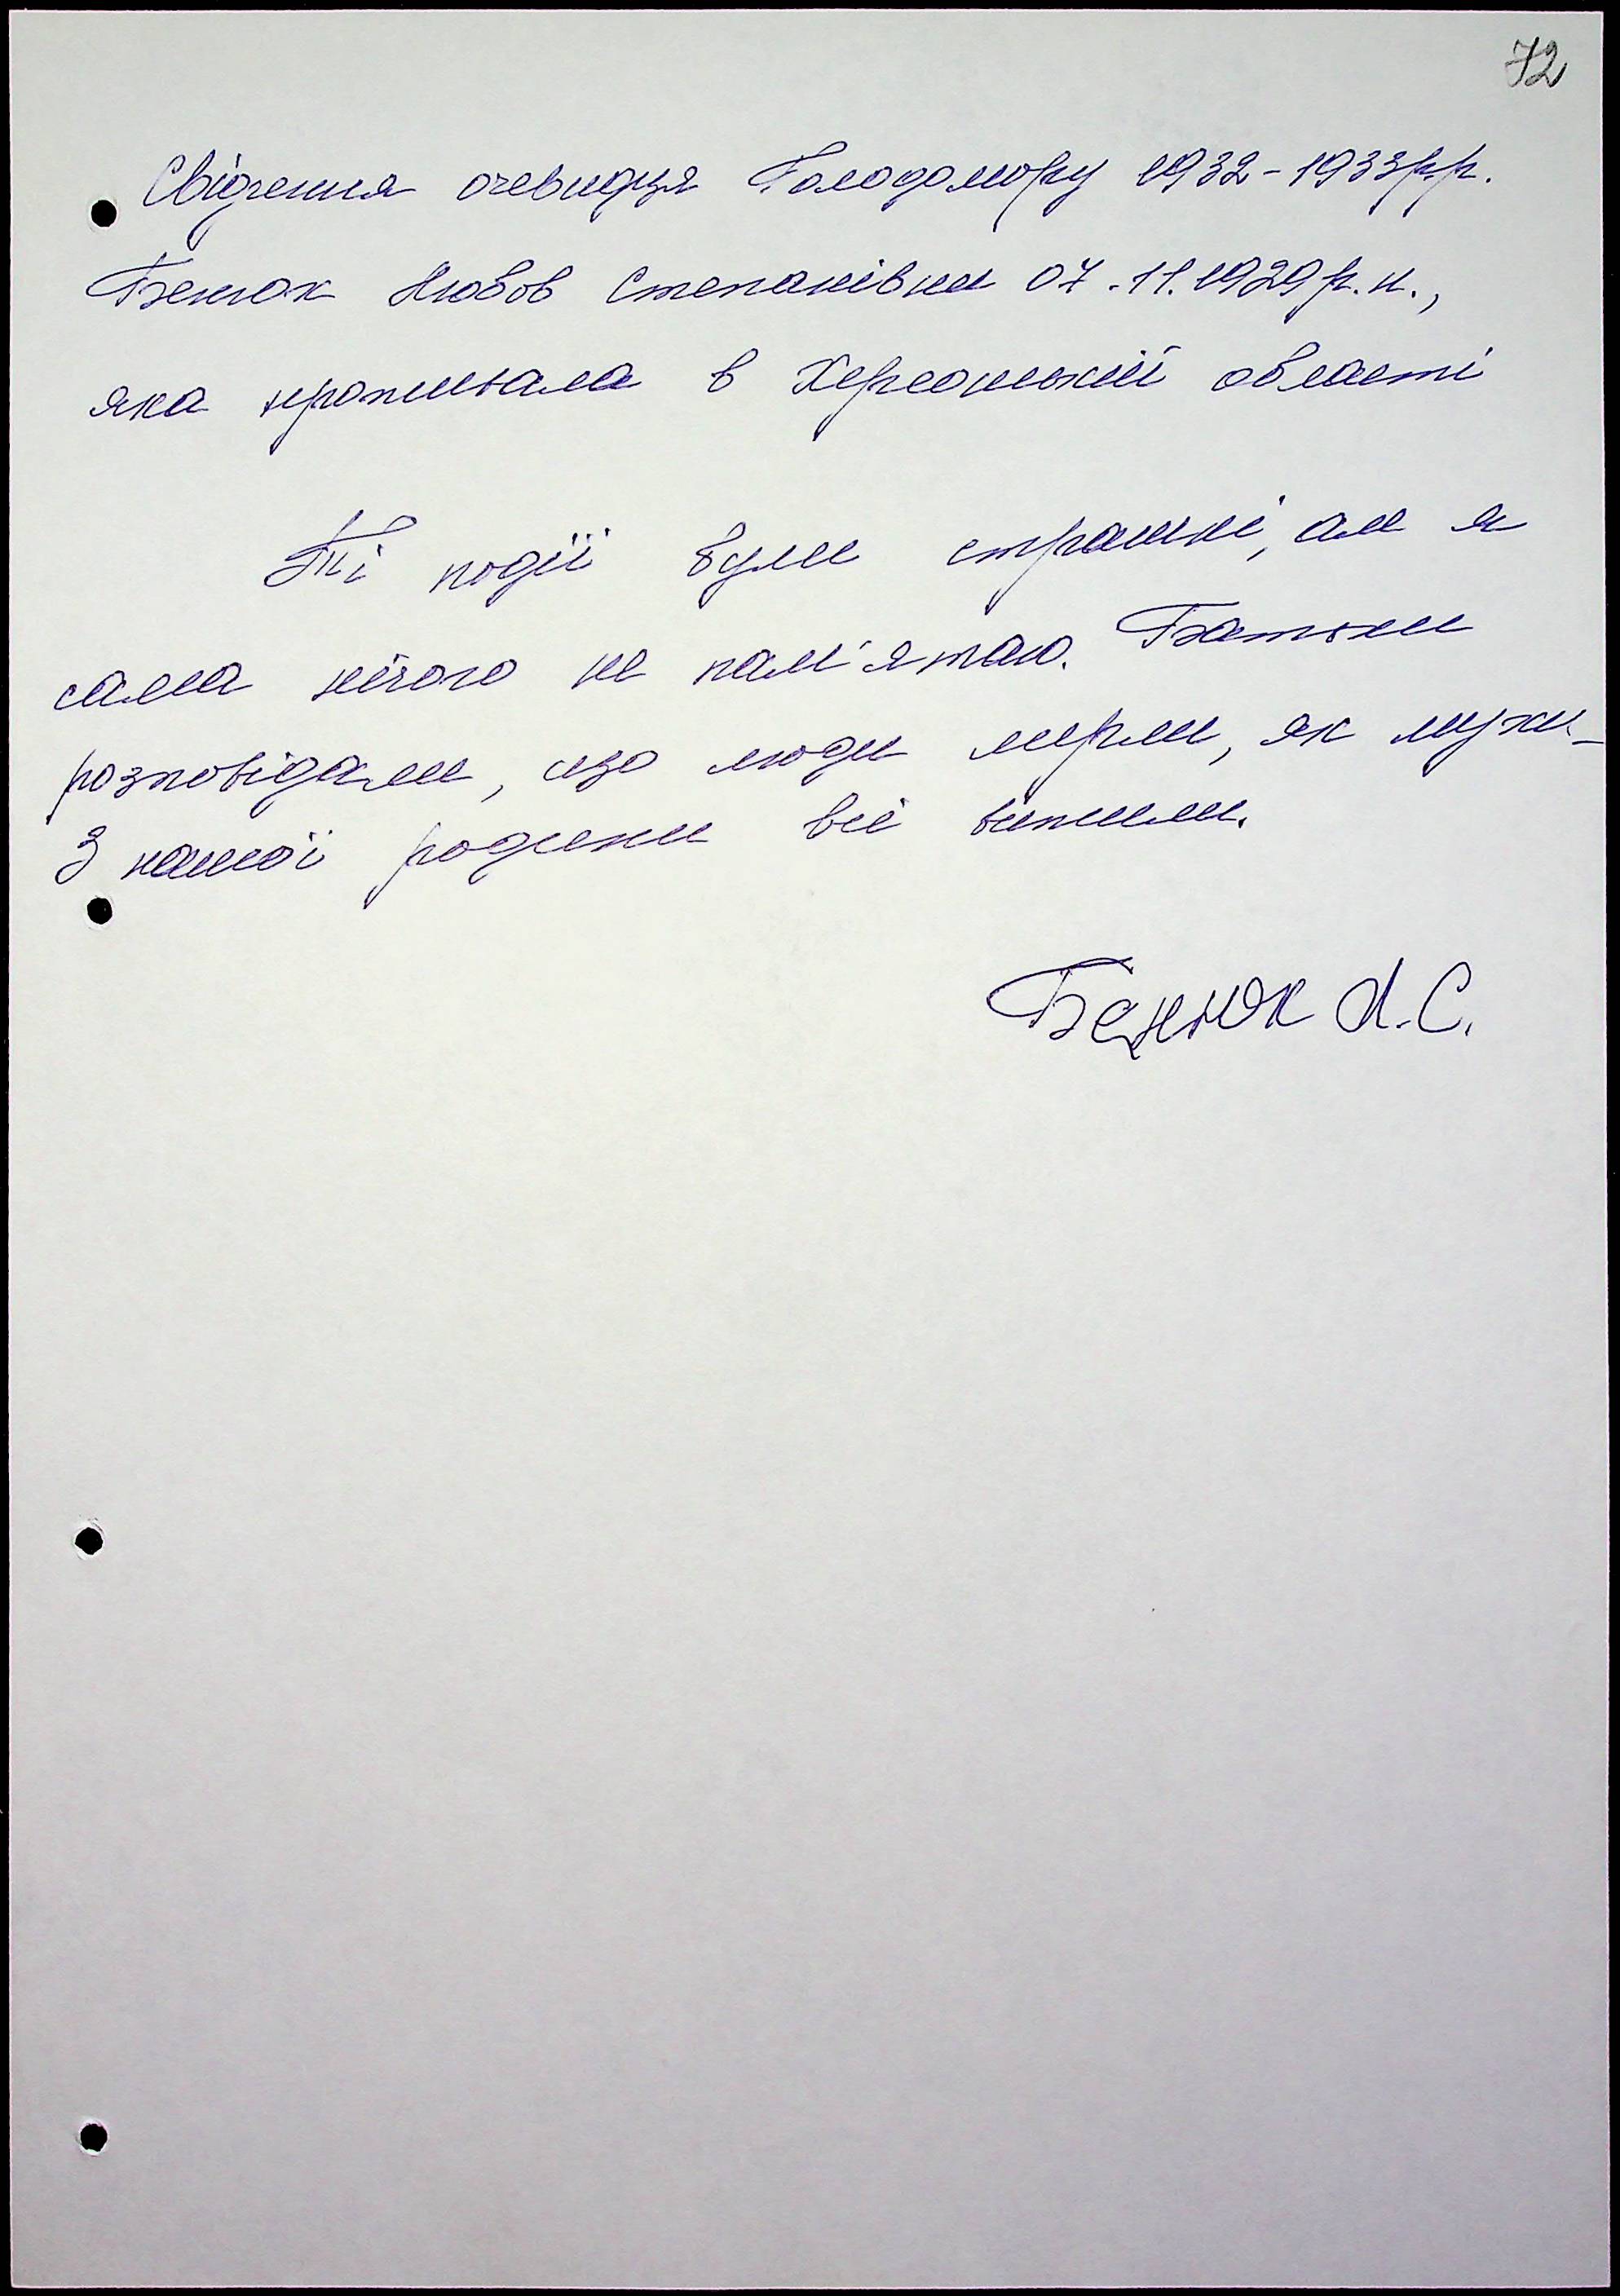 72
Свідчення очевидця Голодомору 1932-1933рр.
Бенюк Любов Степанівна 07.11.1929р.н.,
яка проживала в Херсонській області
Ті події були страшні, але я
сама нічого не пам'ятаю. Батьки
розповідали, що люди мерли, як мухи.
З нашої родини всі вижили.
Бенюк Л.С.